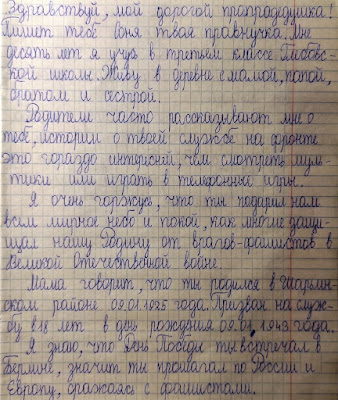 Здравствуй, мой дорогой прапрадедушка!
Пишет тебе Соня твая правнучка. Мне
десять лет я учусь в третьем классе Глебовс-
кой школы. Живу в древне с мамой, папой,
братом и сестрой.
Родители часто рассказывают мне о
тебе, истории о твоей службе на фронте
это гораздо интерсней, чем смотреть мул-
тики или играть в телефонные игры.
Я очень горжусь, что ты подарил нам
всем мирное небо и покой, как многие защи-
щал нашу Родину от врагов-фашистов в
Великой Отечественной войне.
Мама говорит, что ты родился в Шарьин-
ском районе 09.01.1925 года. Призван на служ-
бу в 18 лет в день рождения 09.01.1943 года.
Я знаю, что День Победы ты встречал в
Берлине, значит ты прошагал по России и
Европу, сражаясь с фашистами.